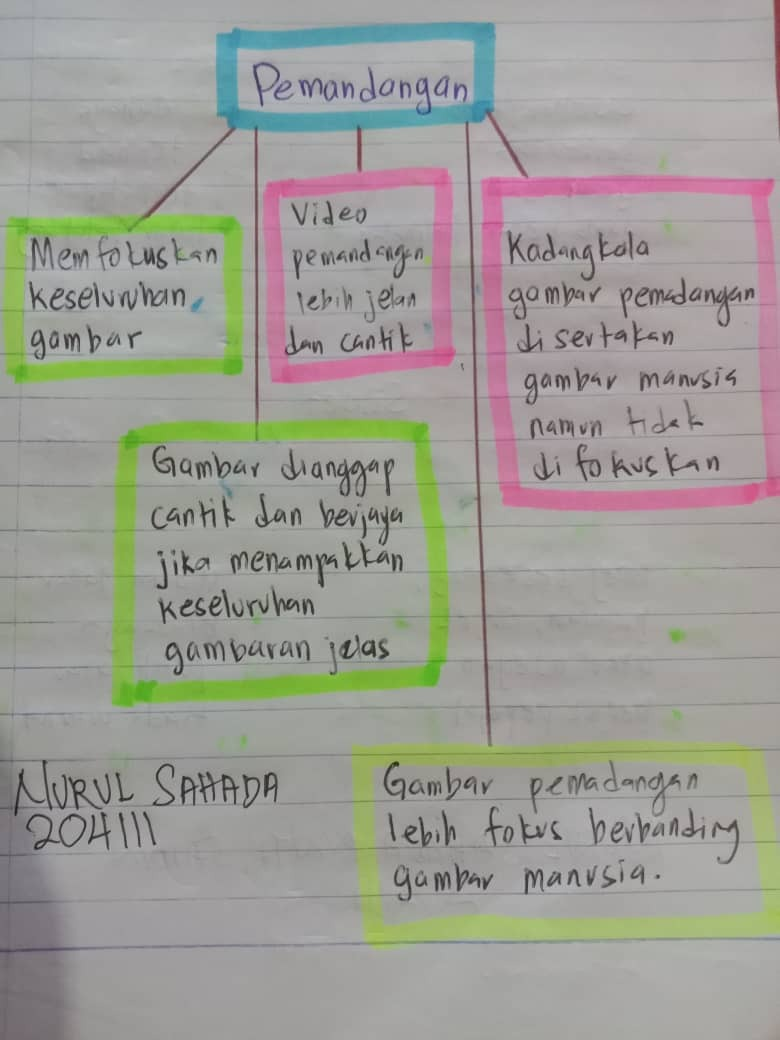 Pemandangan
Memfokuskan
keseluruhan
gambar
Video
pemandangan
lebih jelan
dan cantik
Kadangkala
gambar pemadangan
disertakan
gambar manusia
namun tidak
difokuskan
Gambar dianggap
cantik dan berjaya
jika menampakkan
keseluruhan
gambaran jelas
NURUL SAHADA
204111
Gambar pemadangan
lebih fokus berbanding
gambar manusia.